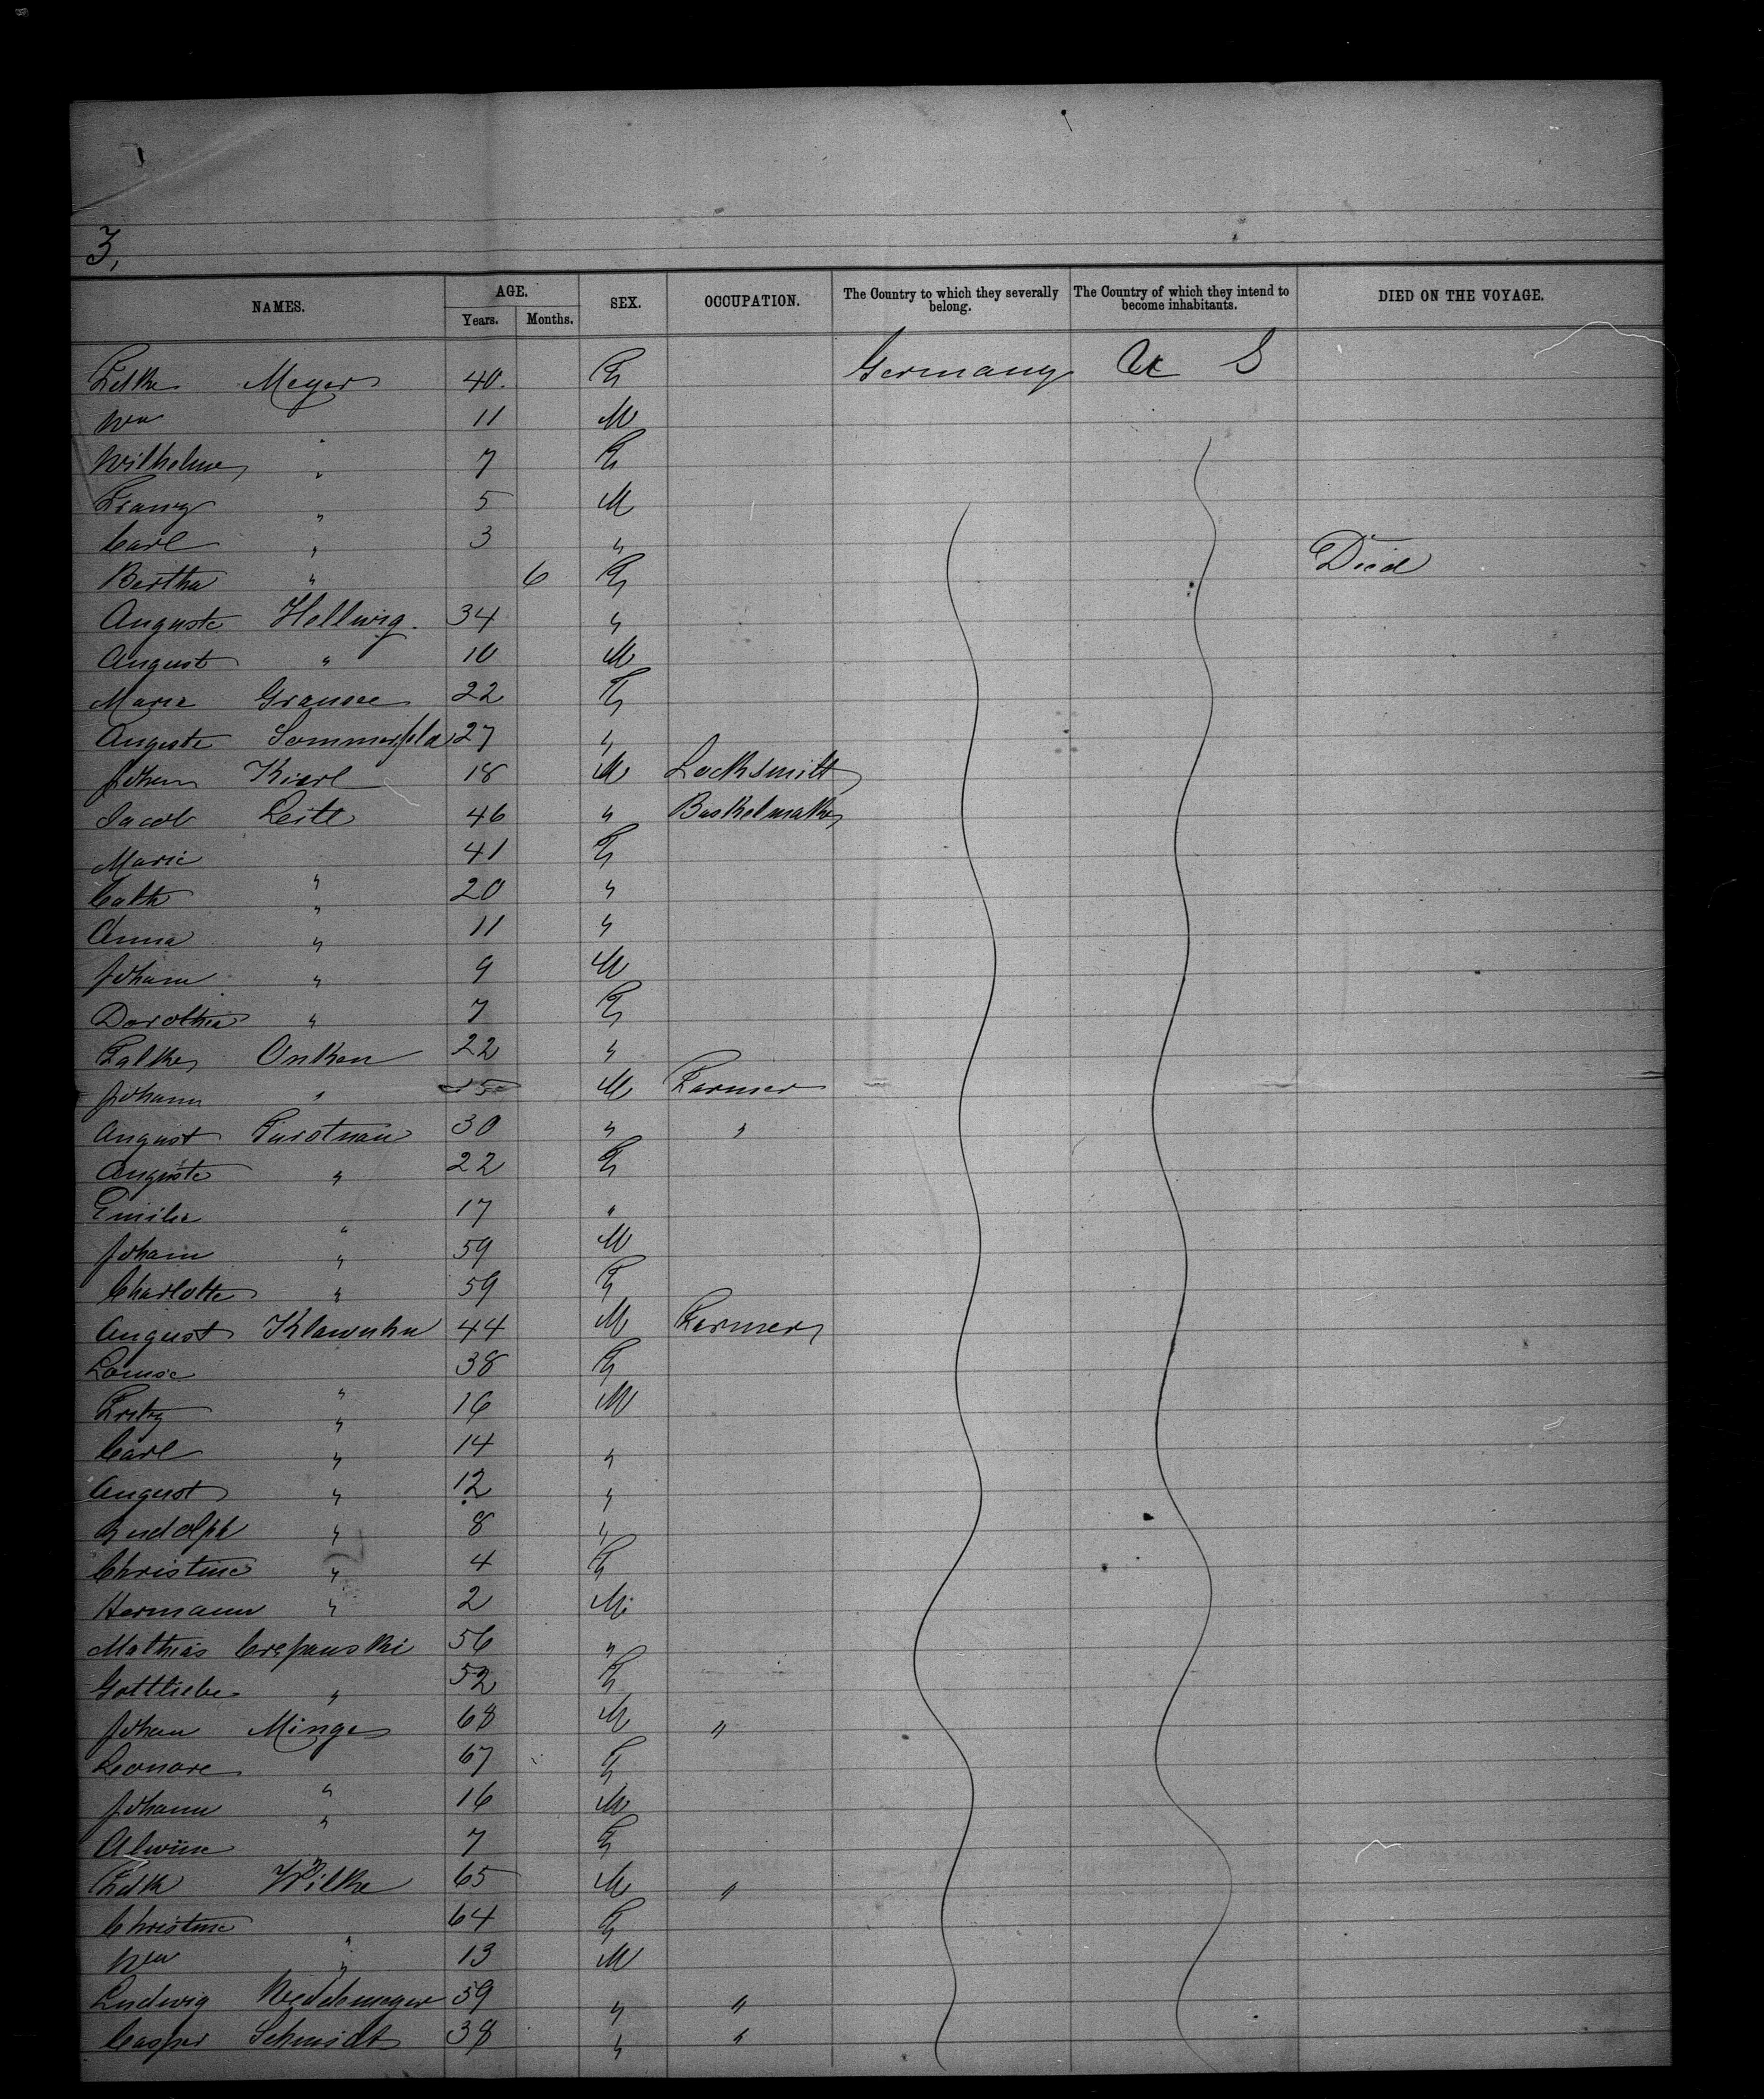 3,
NAMES. AGE. SEX. OCCUPATION. The Country to which they severally belong. The Country of which they intend to become inhabitants. DIED ON THE VOYAGE.
Years. Months.
Meyer 40. F Germany U S
Wm 11 M
Wilhelme " 7 F
Franz " 5 M
Carl " 3 "
Bertha " 6 F Died
Auguste Hellwig. 34 "
August " 10 M
Marie Gransee 22 F
Auguste Sommerfeld 27 "
Johann 18 M Locksmith
Jacob 46 " Basketmaker
Marie " 41 F
Cath " 20 "
Anna " 11 "
Johann " 9 M
Dorothea " 7 F
Onken 22 "
Johann " M Farmer
August 30 " "
Auguste " 22 F
Emilie " 17 "
Johann " 59 M
Charlotte " 59 F
August Klawuhn 44 M Farmer
Louise " 38 F
Fritz " 16 M
Carl " 14 "
August " 12 "
Rudolph " 8 "
Christine " 4 F
Hermann " 2 M
Mathias 56 "
Gottliebe " 52 F
Johann Minge 68 M "
Leonore " 67 F
Johann " 16 M
Alwine " 7 F
Wilke 65 M "
Christine " 64 F
Wm " 13 M
Ludwig Weddemeyer 59 " "
Casper Schmidt 38 " "